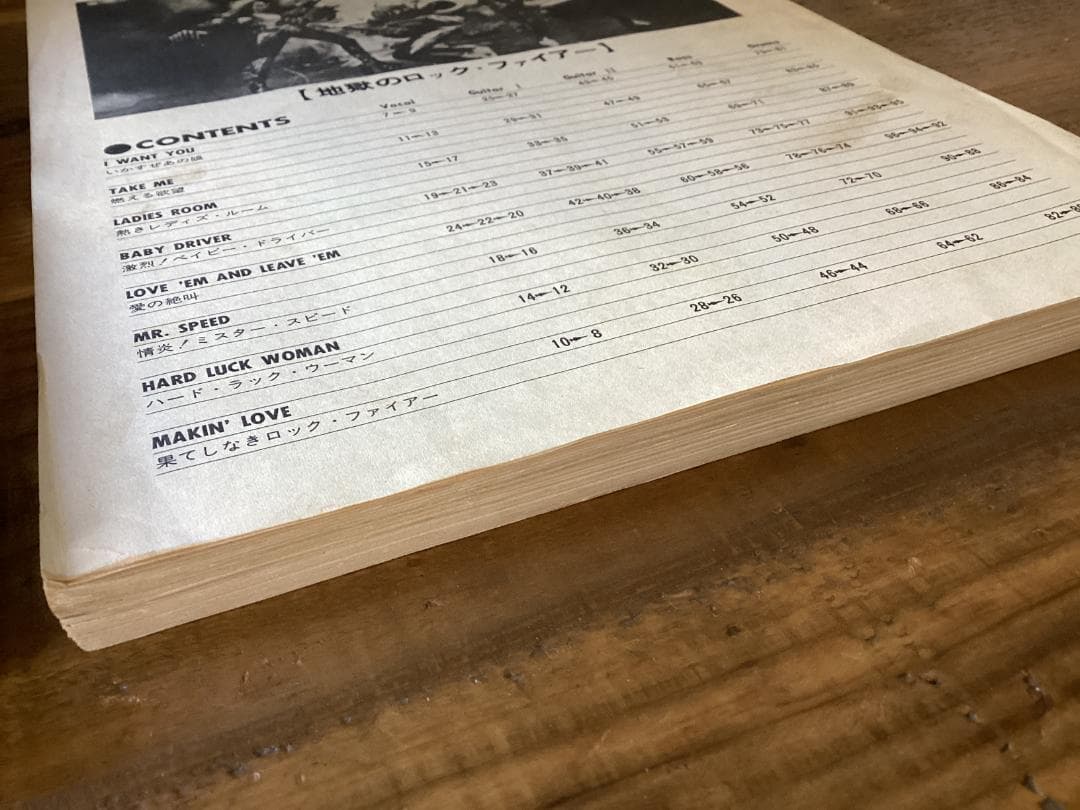 【地獄のロック・ファイアー】
Vocal Guitar I Guitar II Bass Drums
●CONTENTS
I WANT YOU 7←9 25←27 43←45 61←63 79←81
いかすぜあの娘
TAKE ME 11←13 29←31 47←49 65←67 83←85
燃える欲望
LADIES ROOM 15←17 33←35 51←53 69←71 87←89
熱きレディズ・ルーム
BABY DRIVER 19←21←23 37←39←41 55←57←59 73←75←77 91←93←95
激烈！ベイビー・ドライバー
LOVE 'EM AND LEAVE 'EM 24←22←20 42←40←38 60←58←56 78←76←74 96←94←92
愛の絶叫
MR. SPEED 18←16 36←34 54←52 72←70 90←88
情炎！ミスター・スピード
HARD LUCK WOMAN 14←12 32←30 50←48 68←66 86←84
ハード・ラック・ウーマン
MAKIN' LOVE 10←8 28←26 46←44 64←62
果てしなきロック・ファイアー